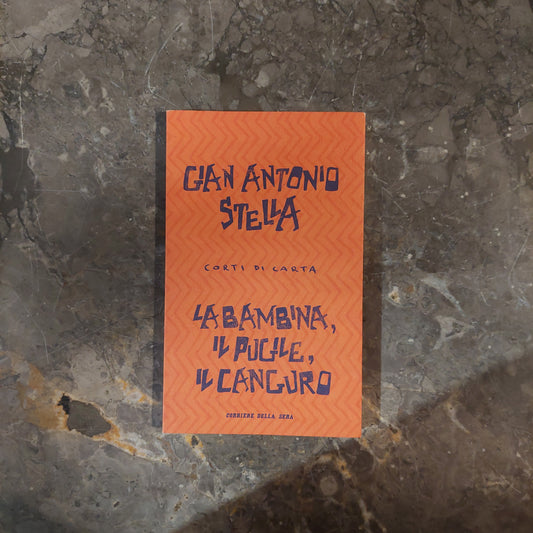 GIAN ANTONIO
STELLA
CORTI DI CARTA
LA BAMBINA,
IL PUGILE,
IL CANGURO
CORRIERE DELLA SERA